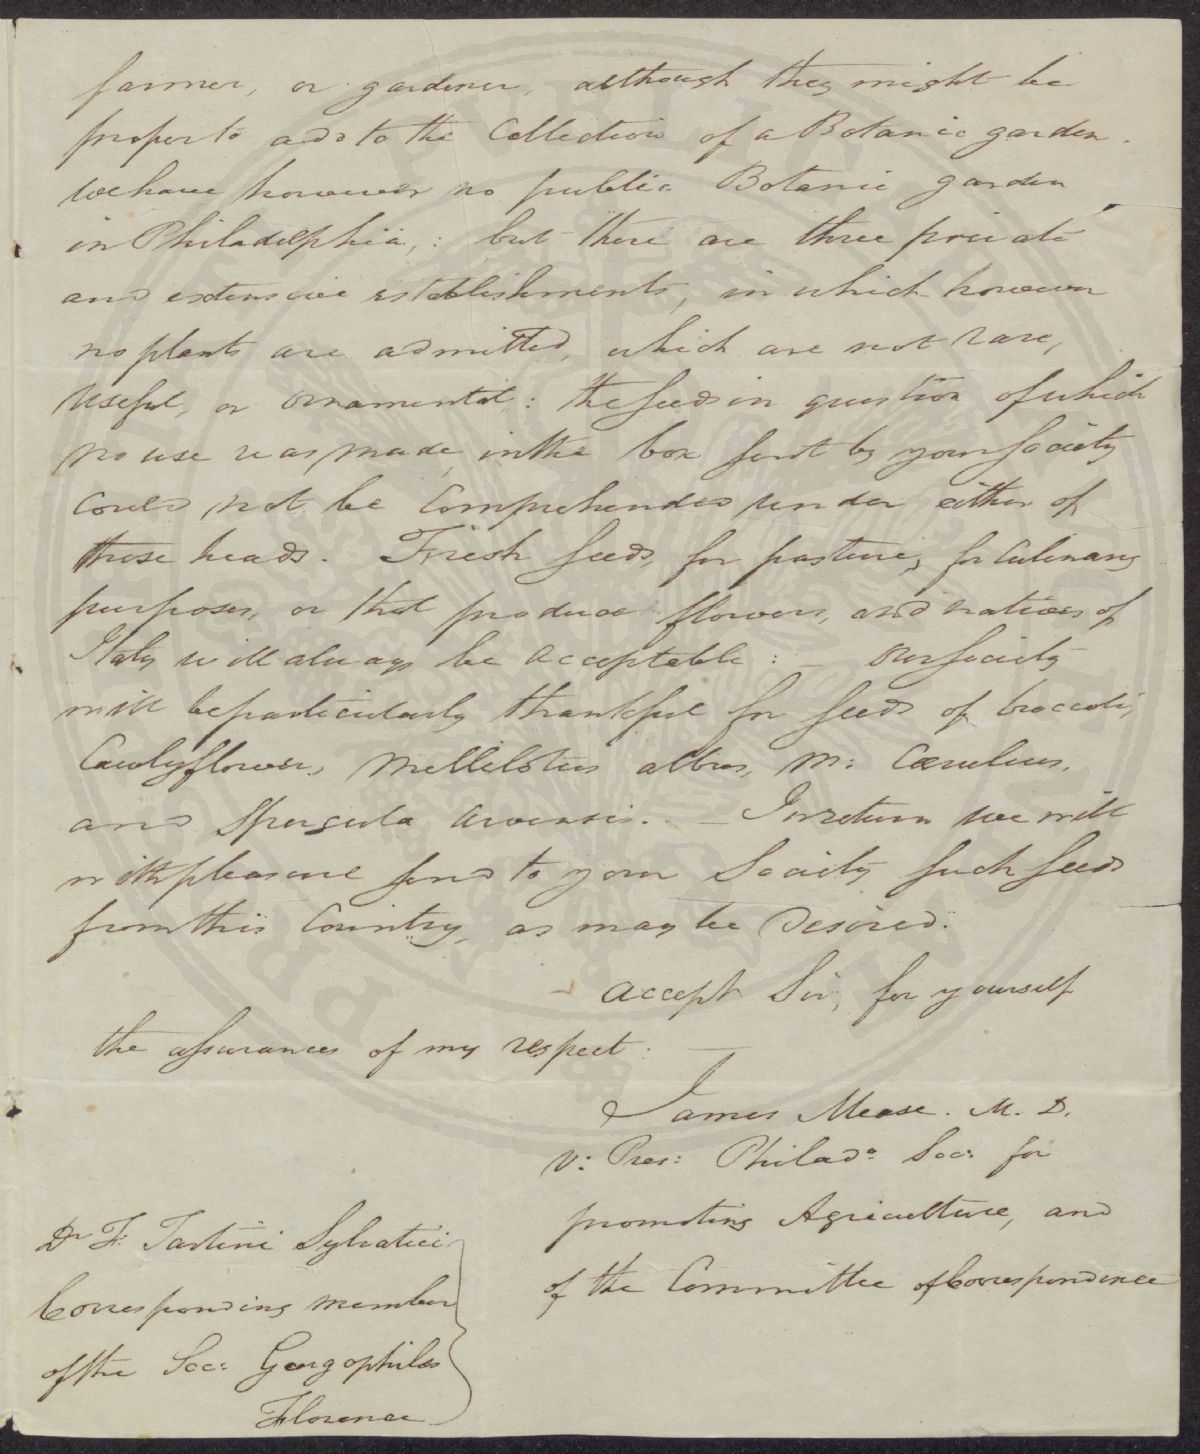 farmer, or gardener, although they might be
proper to add to the Collection of a Botanic garden.
We have however no public Botanic garden
in Philadelphia,: but there are three private
and extensive establishments, in which however
no plants are admitted, which are not rare,
useful, or ornamental: the seeds in question of which
no use was made, in the box sent by your Society
could not be Comprehended under either of
those heads. Fresh seeds, for pasture, for Culinary
purposes, or that produce flowers, and natives of
Italy will always be acceptable: — Our Society
will be particularly thankful for seeds of broccoli,
Cawlyflower, Mellelotus albus, M: Cæruleus,
and Spergula arvensis. — In return we will
with pleasure send to your Society such seeds
from this Country, as may be desired.
accept Sir, for yourself
the assurances of my respect: —
James Mease. M. D.
V: Pres: Philada Soc: for
promoting Agriculture, and
of the Committee of Correspondence
Dr F: Tartini Sylvatici
Corresponding member
of the Soc: Georgophiles
Florence